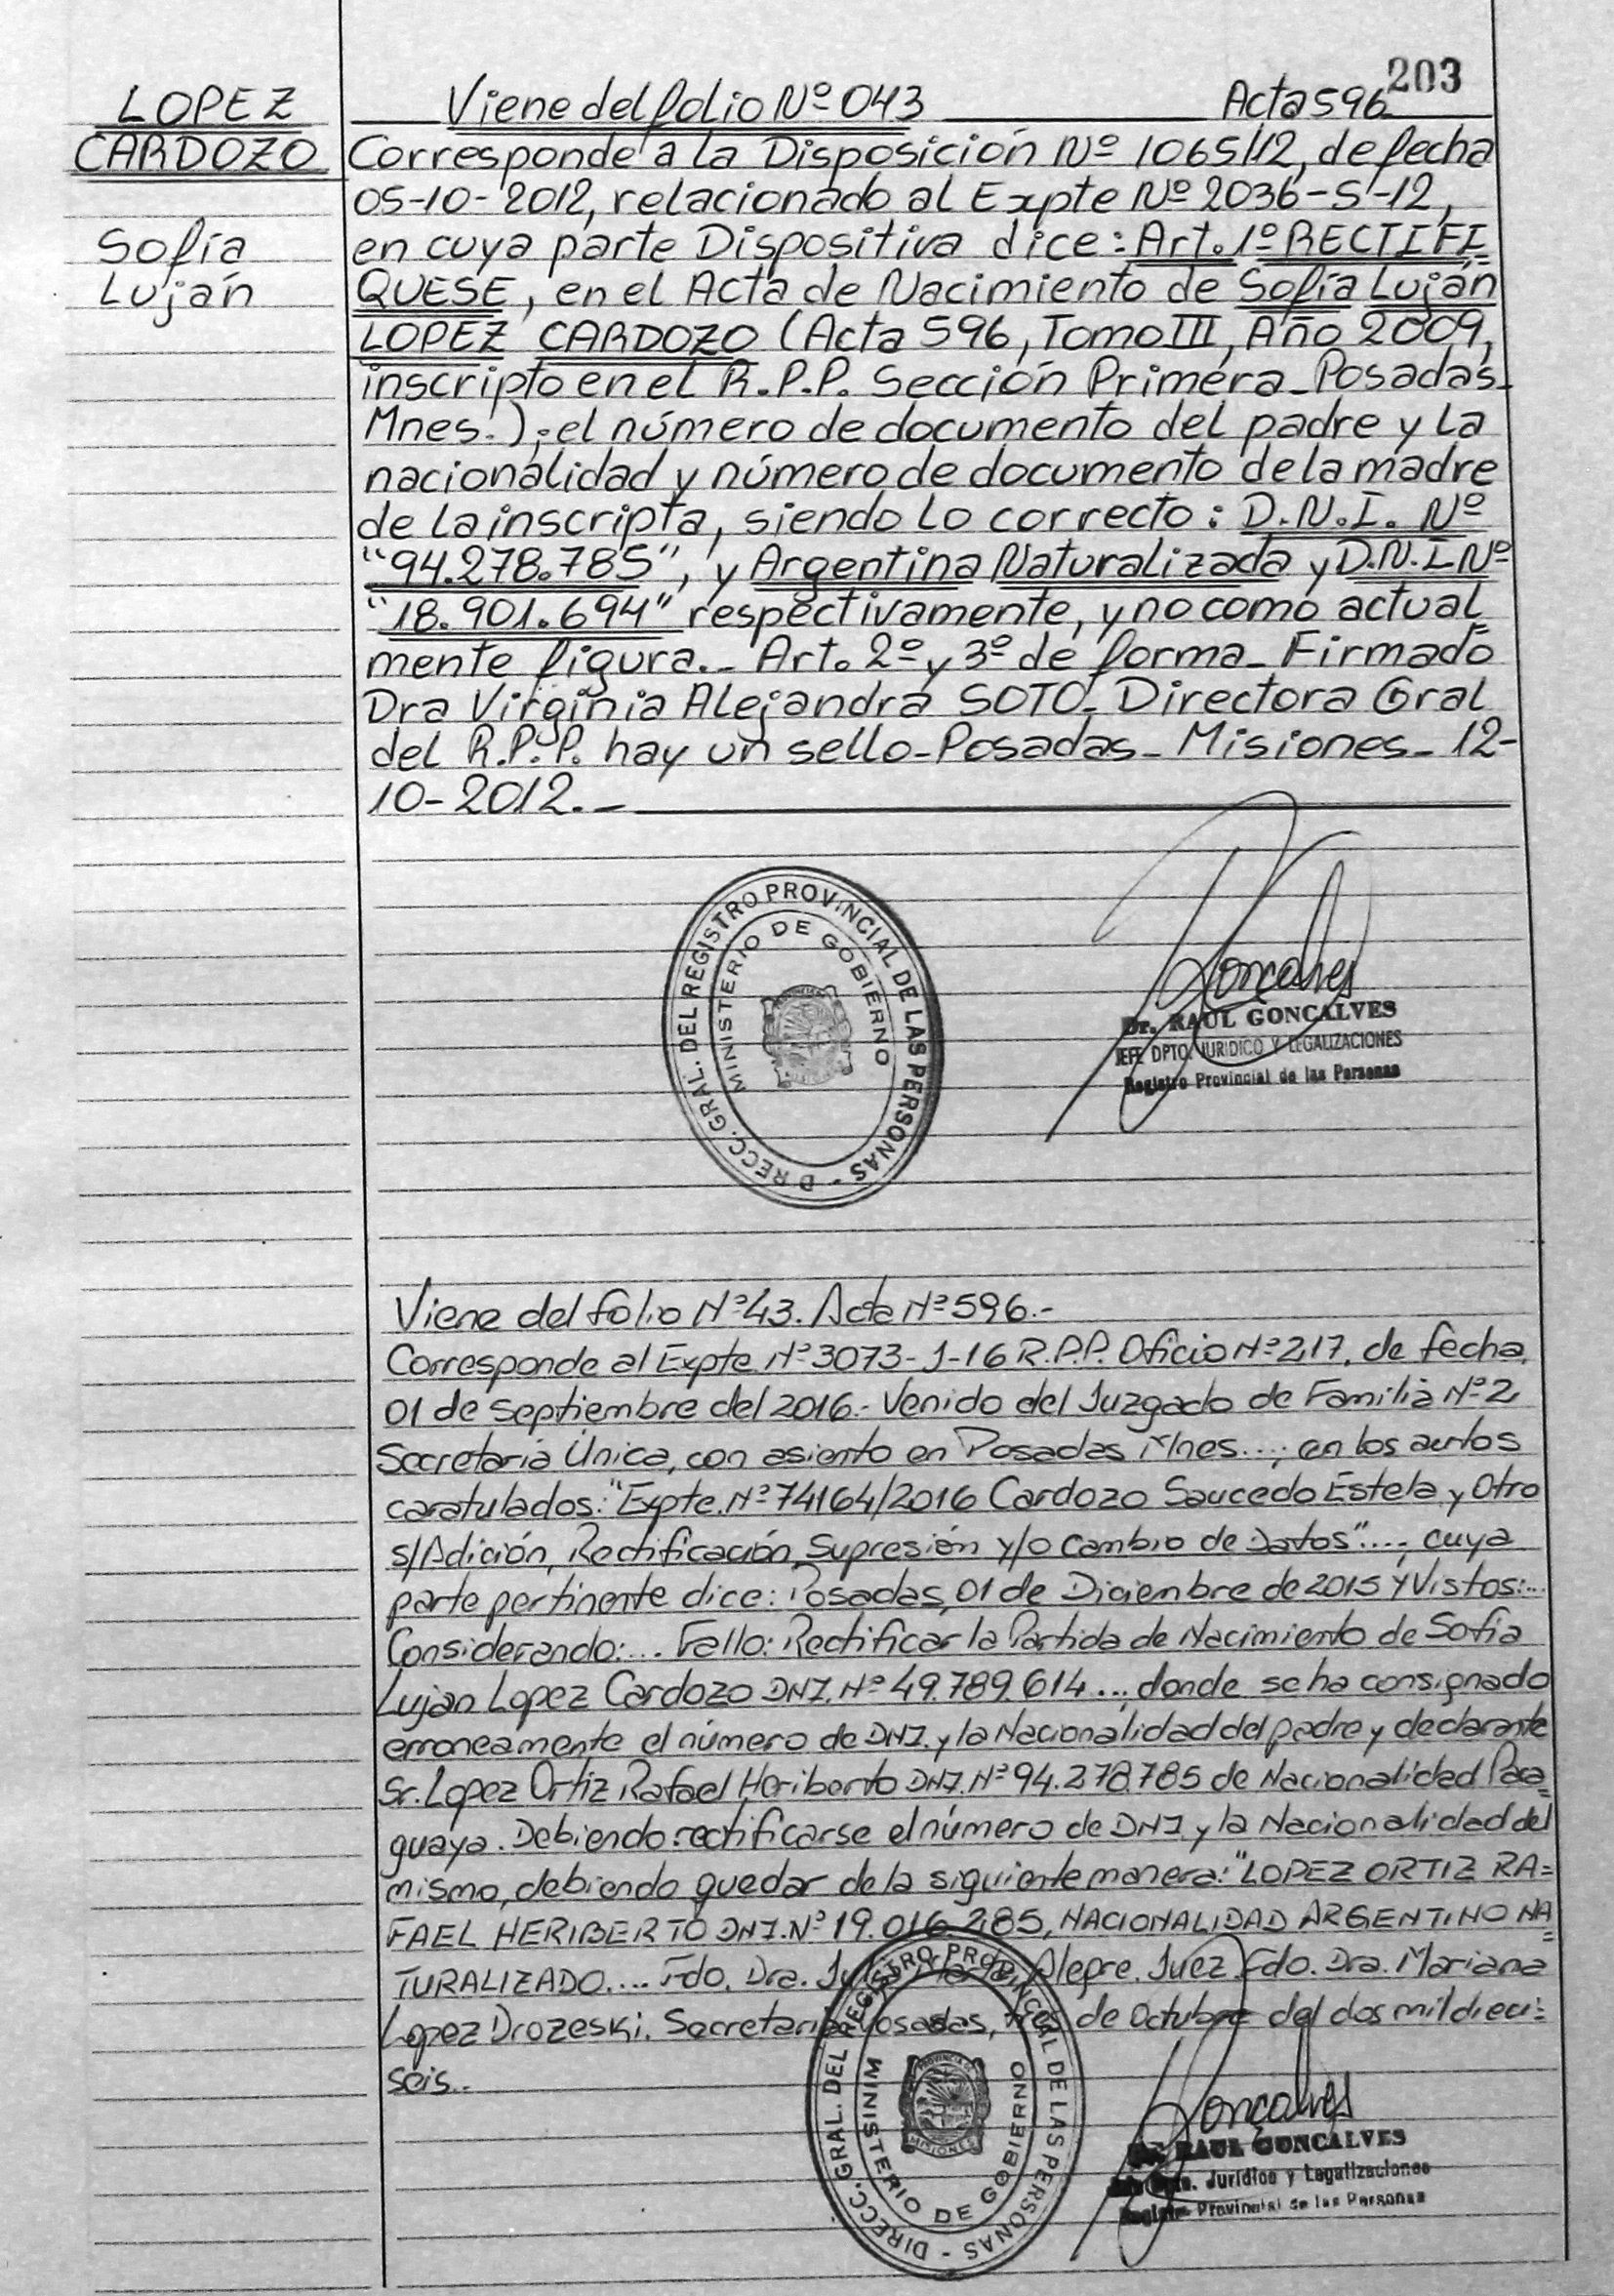 203
LOPEZ
CARDOZO
Sofía
Luján
Viene del folio Nº 043 Acta 596
Corresponde a la Disposición Nº 1065/12, de fecha
05-10-2012, relacionado al Expte Nº 2036-S-12,
en cuya parte Dispositiva dice: Art. 1º RECTIFI=
QUESE, en el Acta de Nacimiento de Sofía Luján
LOPEZ CARDOZO (Acta 596, Tomo III, Año 2009,
inscripto en el R.P.P. Sección Primera_Posadas_
Mnes.); el número de documento del padre y la
nacionalidad y número de documento de la madre
de la inscripta, siendo lo correcto: D.N.I. Nº
"94.278.785", y Argentina Naturalizada y D.N.I Nº
"18.901.694" respectivamente, y no como actual=
mente figura._ Art. 2º y 3º de forma_ Firmado
Dra Virginia Alejandra SOTO_ Directora Gral
del R.P.P. hay un sello_Posadas_ Misiones_ 12-
10-2012._
DIRECC. GRAL. DEL REGISTRO PROVINCIAL DE LAS PERSONAS -
MINISTERIO DE GOBIERNO
Goncalves
Dr. RAUL GONCALVES
JEFE DPTO. JURIDICO Y LEGALIZACIONES
Registro Provincial de las Personas
Viene del folio Nº 43. Acta Nº 596.-
Corresponde al Expte. Nº 3073-J-16 R.P.P. Oficio Nº 217. de fecha
01 de septiembre del 2016.- Venido del Juzgado de Familia Nº 2
Secretaria Única, con asiento en Posadas Mnes...; en los autos
caratulados: "Expte. Nº 74164/2016 Cardozo Saucedo Estela y Otro
s/Adición, Rectificación, Supresión y/o Cambio de Datos"...., cuya
parte pertinente dice: Posadas, 01 de Diciembre de 2015 Y Vistos:...
Considerando:.... Fallo: Rectificar la Partida de Nacimiento de Sofia
Lujan Lopez Cardozo DNI. Nº 49.789.614..., donde se ha consignado
erroneamente el número de DNI. y la Nacionalidad del padre y declarante
Sr. Lopez Ortiz Rafael Heriberto DNI. Nº 94.278.785 de Nacionalidad Para=
guaya. Debiendo rectificarse el número de DNI y la Nacionalidad del
mismo, debiendo quedar de la siguiente manera: "LOPEZ ORTIZ RA=
FAEL HERIBERTO DNI. Nº 19.016.285, NACIONALIDAD ARGENTINO NA=
TURALIZADO.... Fdo. Dra. Alegre. Juez. Fdo. Dra. Mariana
Lopez Drozeski. Secretaria Posadas, tres de Octubre del dos mil dieci=
seis.-
DIRECC. GRAL. DEL REGISTRO PROVINCIAL DE LAS PERSONAS -
MINISTERIO DE GOBIERNO
PROVINCIA DE
MISIONES
Goncalves
Dr. RAUL GONCALVES
Jurídico y Legalizaciones
Registro Provincial de las Personas